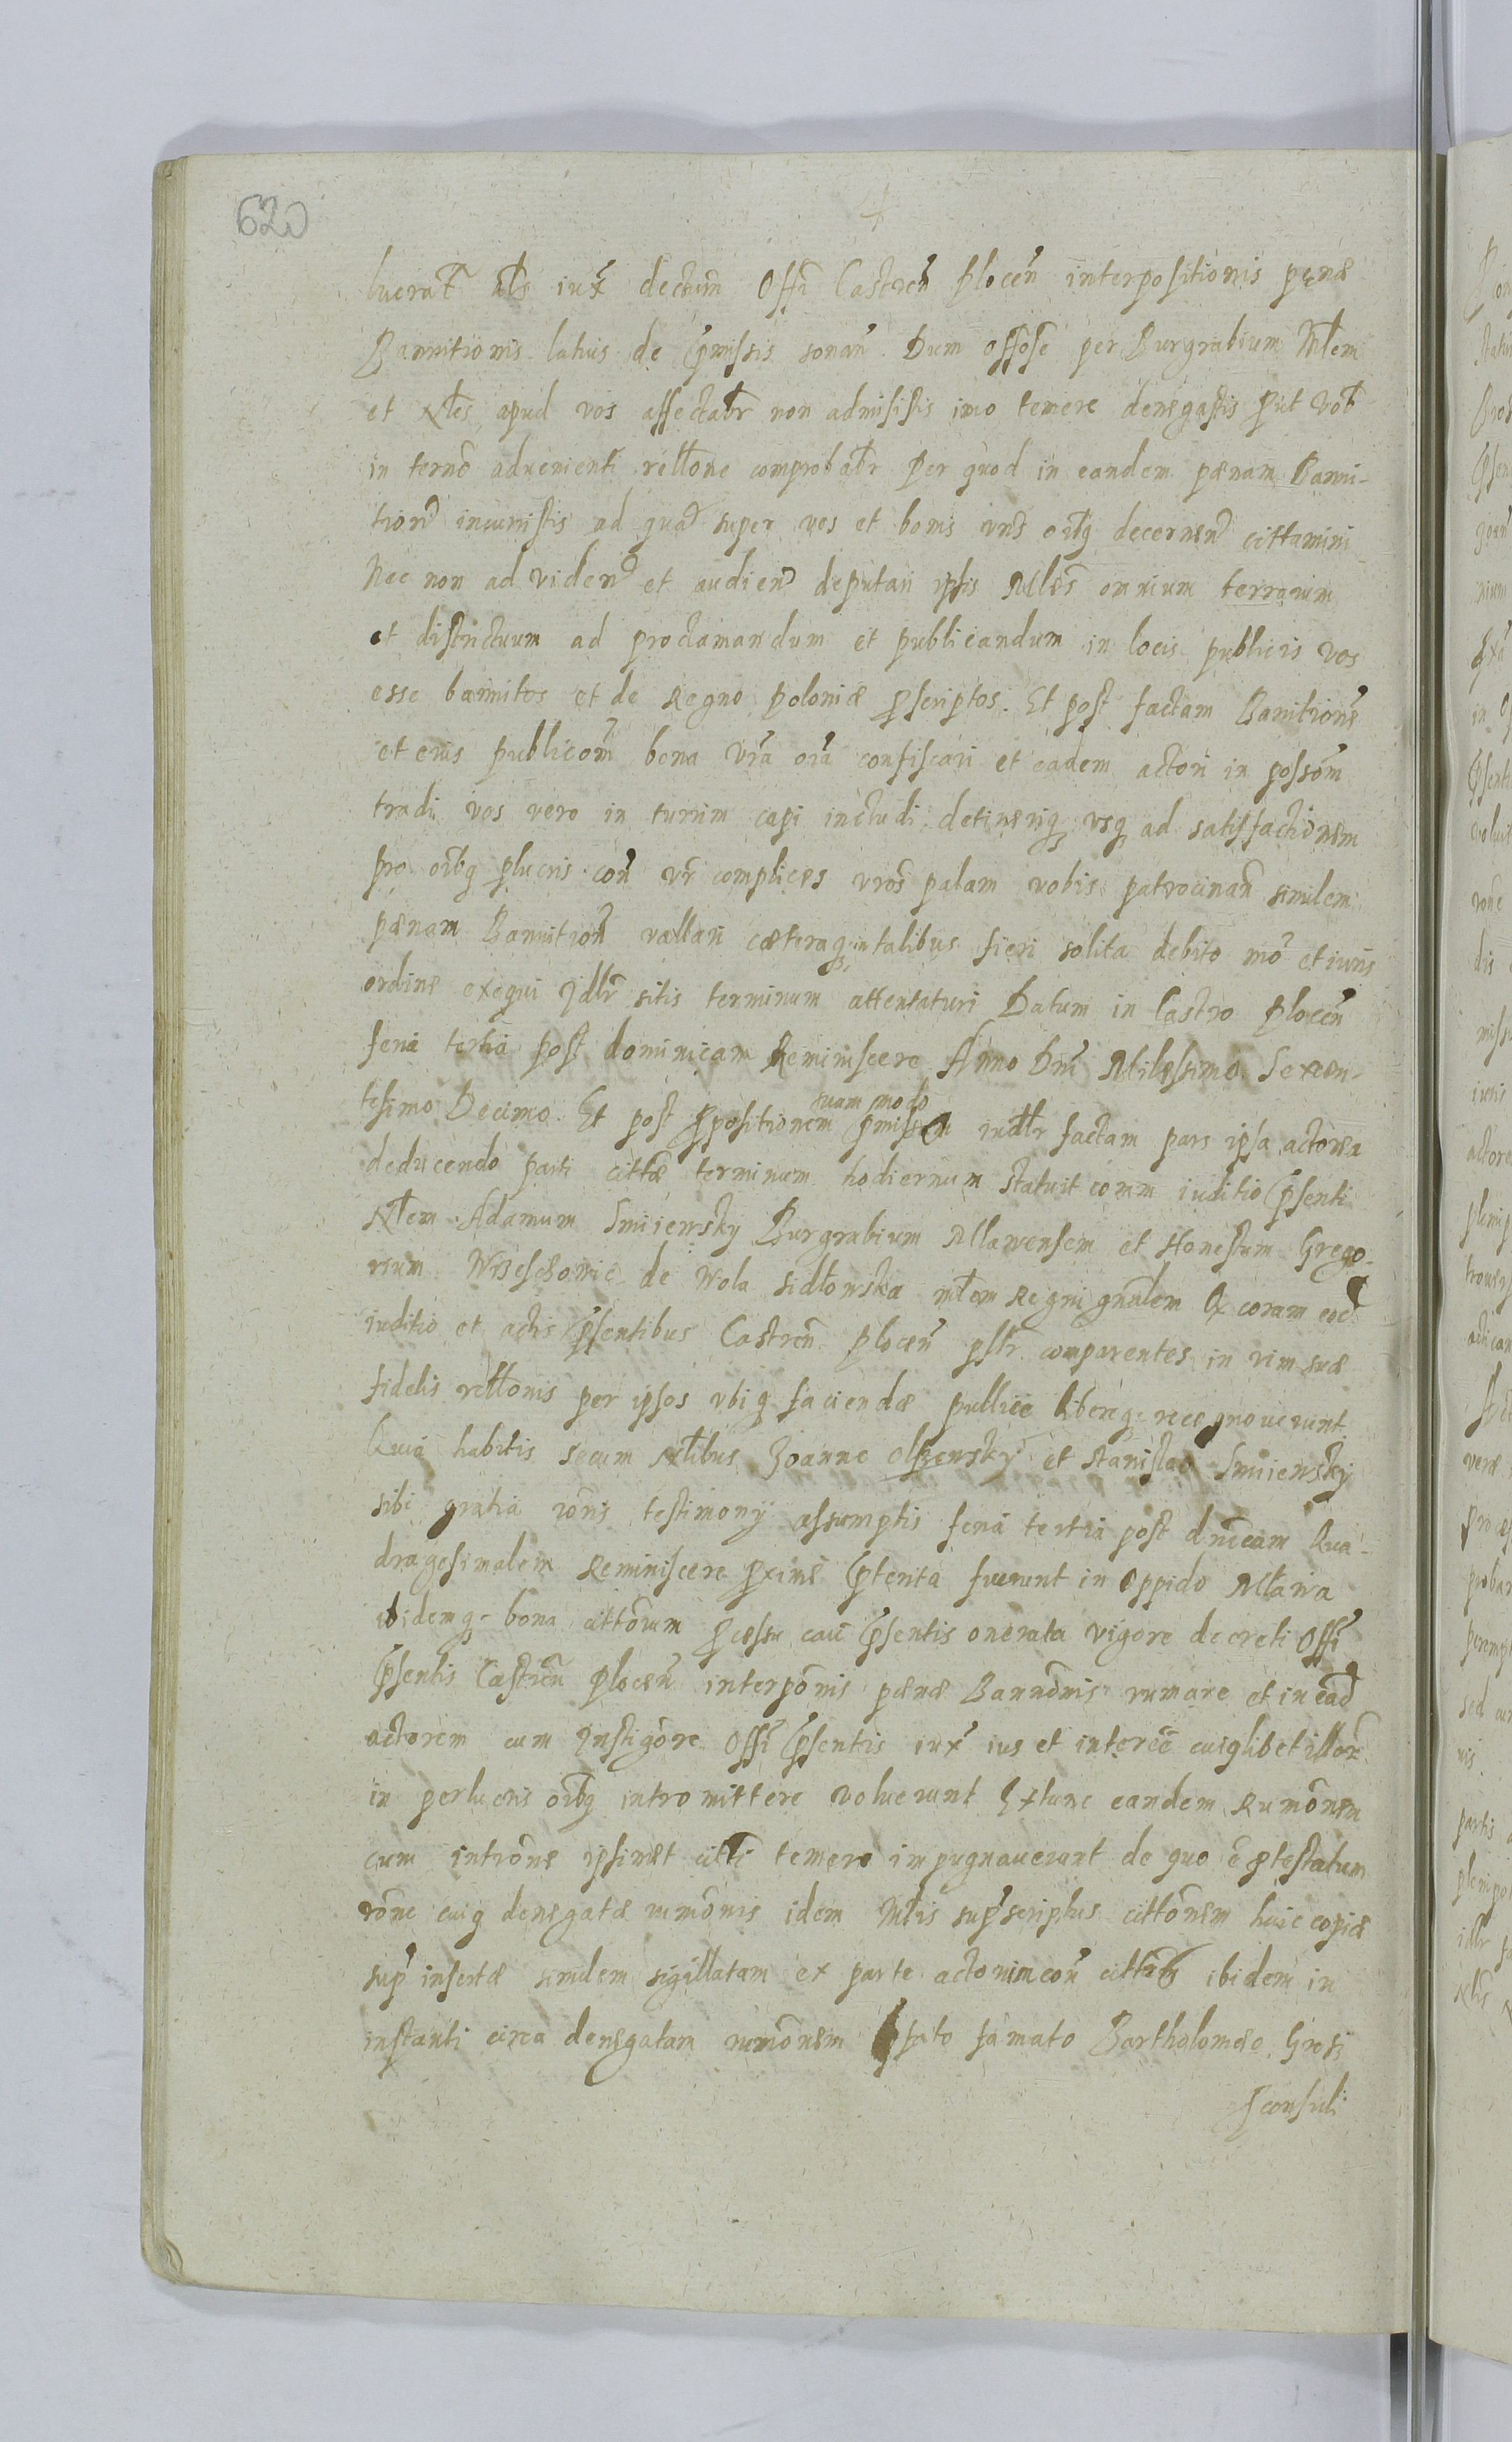 620
luerat als iux decretum Offi Castren Plocen interpositionis penæ
Bannitionis latius de pmissis sonan. Dum offose per Burgrabium Mlem
et Nles apud vos affectabr non admisistis imo temere denegastis put vob
in termo aduenienti rellone comprobabr Per quod in eandem pænam Banni-
tion incurristis ad qua super vos et bonis vris oibq decernen cittamini
Nec non ad viden et audien deputari ipsis Mlles omnium terrarum
et districtuum ad proclamandum et publicandum in locis publicis vos
esse bannitos et de Regno Poloniæ pscriptos. Et post factam Banitione
et eius publicom bona vra oia confiscari et eadem actori in possom
tradi vos vero in turrim capi includi detineriq vsq ad satisfactionem
pro oibq plucris con vr complices vros palam vobis patrocinan similem
pænam Bannition vallari cæteraq in talibus fieri solita debito mo et iuris
ordine exequi Idlr sitis terminum attentaturi Datum in Castro Plocen
feria tertia post dominicam Reminiscere Anno Dni Milessimo Sexcen-
tesimo Decimo. Et post ppositionem suam modo pmisso indlr factam pars ipsa actorea
deducendo parti cittæ terminum hodiernum statuit coram iuditio psenti
Nlem Adamum Smiiewsky Burgrabium Mlawensem et Honestum Grego-
rium de Wola Sidlowska mlem Regni gnalem Qx coram eod
iuditio et actis psentibus Castren Plocen pslr comparentes in vim suæ
fidelis rellonis per ipsos vbiq faciendæ publice libereq recognouerunt
Quia habitis secum Nlibus Joanne Olszewsky et Stanislao Smiiewsky
sibi gratia ionis testimony assumptis feria tertia post dnicam Qua-
dragesimalem Reminiscere pxime ptenta fuerunt in Oppido Mlawa
ibidemq bona cittorum pcessu cau psentis onerata vigore decreti Offi
psentis Castren Plocen interponis pænæ Bannonis rumare et in ead
actorem cum Instigore Offi psentis iux ius et interee cuiqlibet illor
in perlucris oibq intromittere voluerunt Extunc eandem Rumonem
cum introne ipsimet citti temere impugnauerunt de quo e ptestatum
rone cuiq denegatæ rumonis idem Mlis sup scriptus cittonem huic copiæ
sup insertæ similem sigillatam ex parte actorum con cittis ibidem in
instanti circa denegatam rumonem psato famato Bartholomeo Gresi
consuli